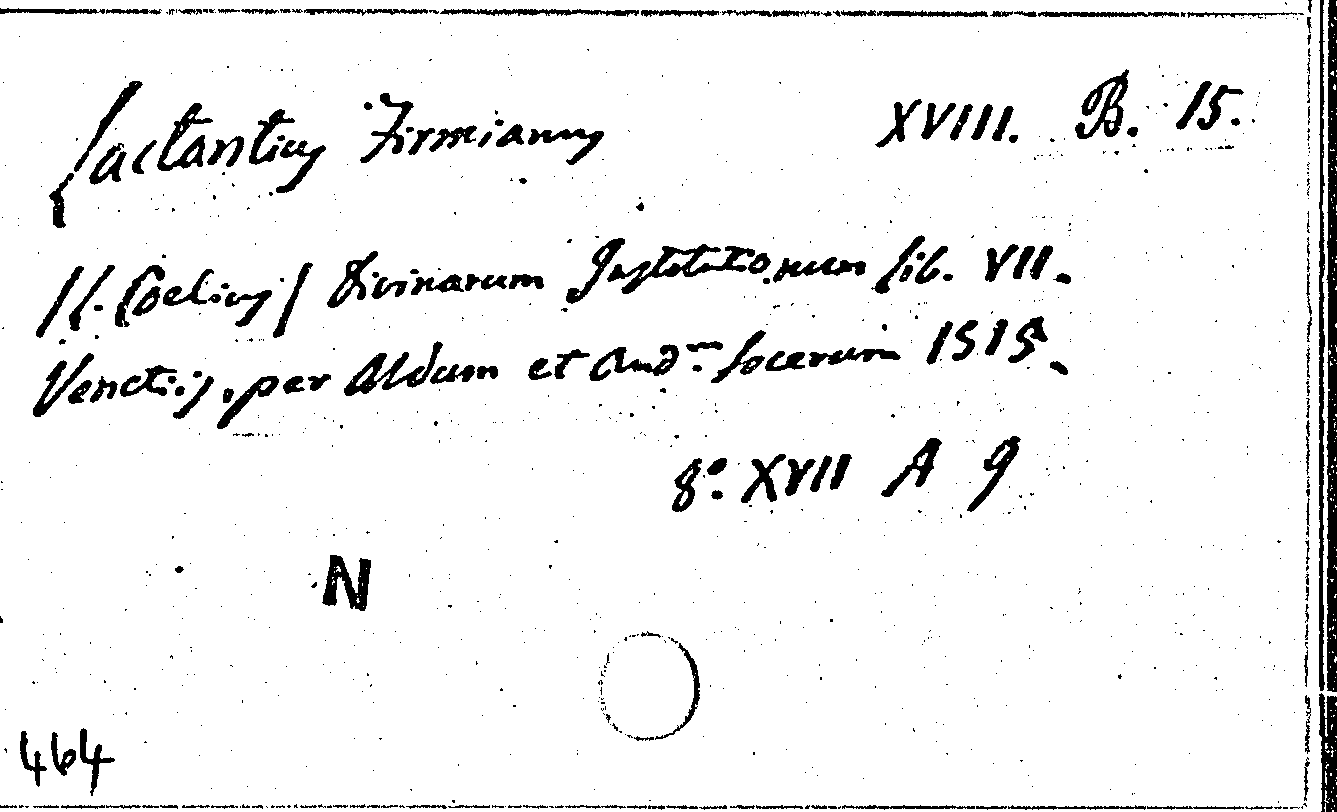 Lactantius Firmianus XVIII. B. 15.
/L. Coelius/ Divinarum Institutionum lib. VII.
Venetiis, per Aldum et And.m Socerum 1515.
8.o XVII A 9
N
464